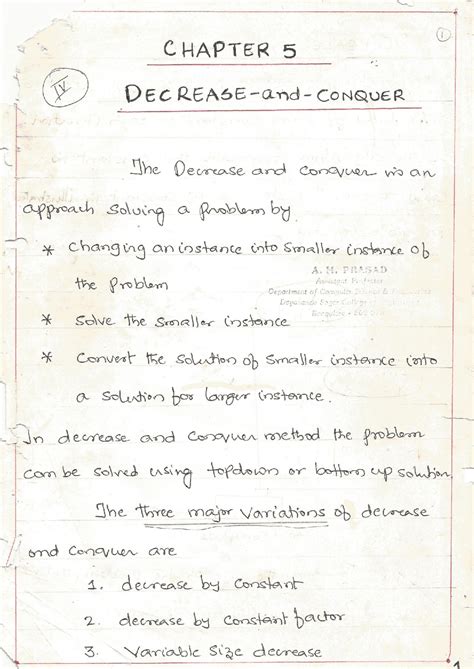 1
CHAPTER 5
IV
DECREASE-and-CONQUER
The Decrease and conquer is an
approach solving a problem by
* Changing an instance into smaller instance of
the problem
A. M. PRASAD
Assistant Professor
Department of Computer Science &
Dayananda Sagar College
Bangalore - 560
* Solve the smaller instance
* Convert the solution of smaller instance into
a solution for larger instance.
In decrease and conquer method the problem
can be solved using topdown or bottom up solution.
The three major variations of decrease
and conquer are
1. decrease by constant
2. decrease by constant factor
3. Variable size decrease